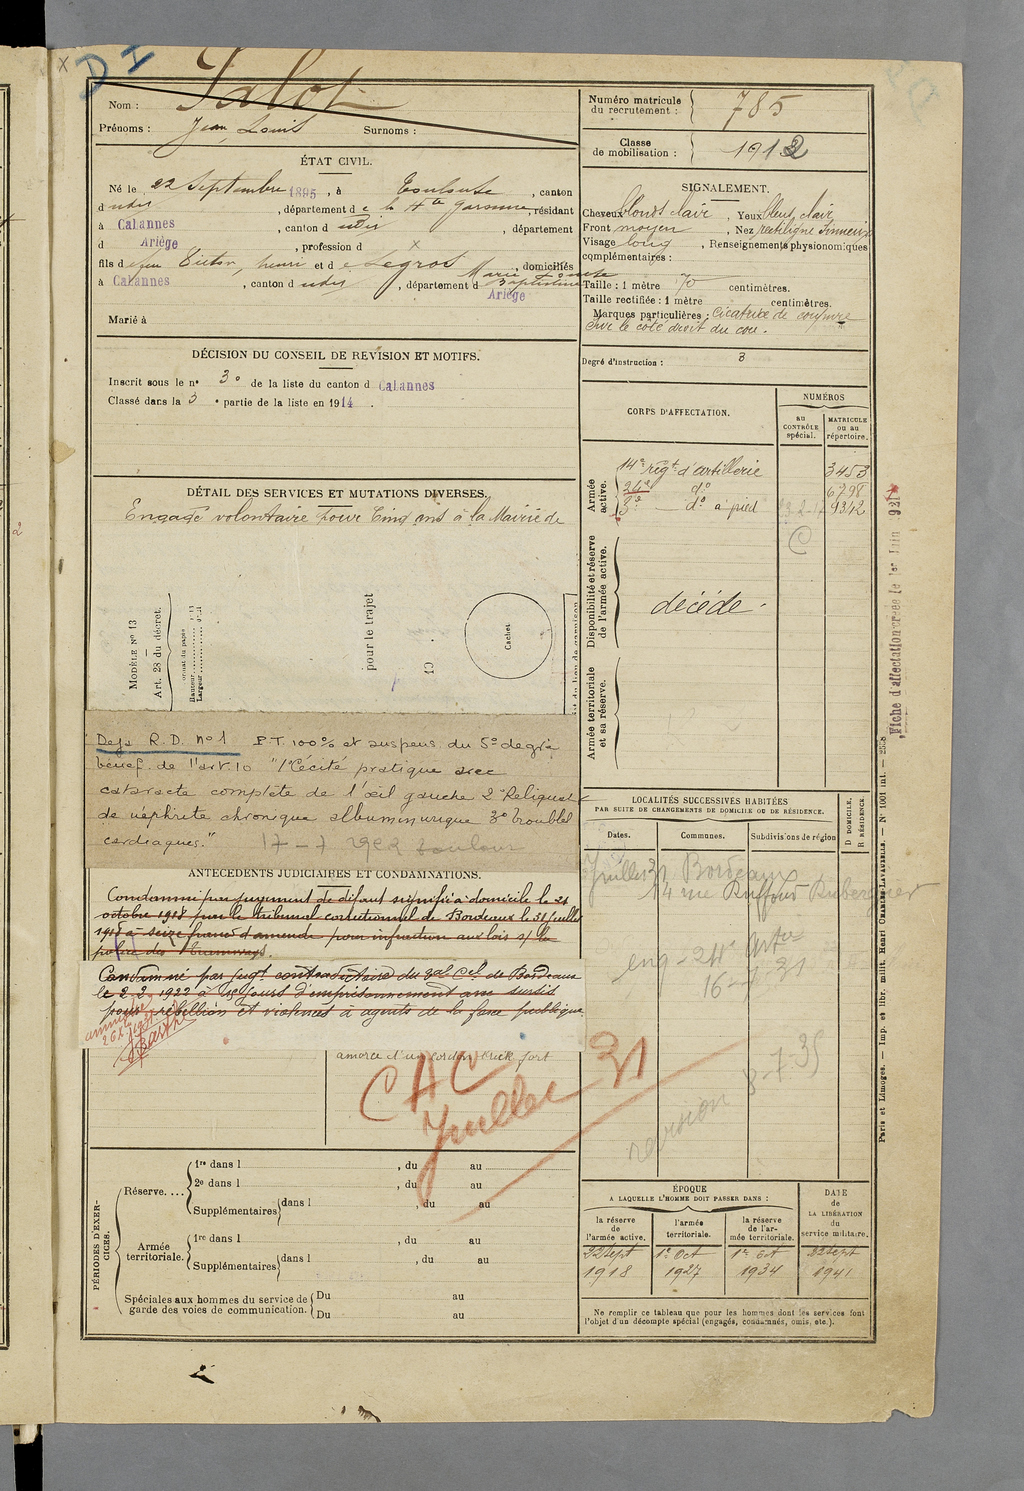 X
D I
Nom : Salot
Prénoms : Jean Louis Surnoms :
ÉTAT CIVIL.
Né le 22 Septembre 1895, à Toulouse, canton
d udis, département de la Hte Garonne, résidant
à CaLannes, canton d udis, département
d Ariège, profession d X
fils de feu Victor, henri et de Legros Marie, domiciliés
à CaLannes, canton d udis, département d Ariège
Marié à
DÉCISION DU CONSEIL DE REVISION ET MOTIFS.
Inscrit sous le n° 3° de la liste du canton d CaLannes
Classé dans la 3 e partie de la liste en 1914.
DÉTAIL DES SERVICES ET MUTATIONS DIVERSES.
Engagé volontaire pour Cinq ans à la Mairie de
MODÈLE N° 13
Art. 28 du décret.
Format du papier
Hauteur
Largeur
pour le trajet
19 .
Cachet
Deja R.D. N° 1 P.T. 100% et suspens. du 5° degré
bénéf. de l'art. 10 "1° Cécité pratique avec
cataracte complète de l'œil gauche 2° Reliquat
de néphrite chronique albuminurique 3° troubles
cardiaques."
ANTÉCÉDENTS JUDICIAIRES ET CONDAMNATIONS.
Condamné par jugement de défaut signifié à domicile le 21
octobre 1918 par le tribunal correctionnel de Bordeaux le 31 juillet
1918 à seize francs d'amende pour infraction aux lois s/ la
police des tramways.
Condamné par jugt contradictoire du gal Cel de Bordeaux
le 2 2 1922 à 15 jours d'emprisonnement avec sursis
pour rébellion et violences à agents de la force publique
amorce d'un cordon brick fort
CAC
Juillet 31
PÉRIODES D'EXERCICES.
Réserve....
1re dans l , du au
2e dans l , du au
Supplémentaires dans l , du au
Armée territoriale.
1re dans l , du au
Supplémentaires dans l , du au
Spéciales aux hommes du service de garde des voies de communication.
Du au
Du au
Numéro matricule du recrutement : 785
Classe de mobilisation : 1912
SIGNALEMENT.
Cheveux blonds clair, Yeux bleus clair
Front moyen, Nez rectiligne
Visage long, Renseignements physionomiques
complémentaires :
Taille : 1 mètre 70 centimètres.
Taille rectifiée : 1 mètre centimètres.
Marques particulières : Cicatrice de coupure
sur le côté droit du cou.
Degré d'instruction : 3
CORPS D'AFFECTATION.
NUMÉROS
au CONTRÔLE spécial.
MATRICULE ou au répertoire.
Armée active.
14e régt d'artillerie 3453
24e d° 6798
3e — d° à pied 9342
C
Disponibilité et réserve de l'armée active.
décédé.
Armée territoriale et sa réserve.
LOCALITÉS SUCCESSIVES HABITÉES
PAR SUITE DE CHANGEMENTS DE DOMICILE OU DE RÉSIDENCE.
Dates. Communes. Subdivisions de région
D DOMICILE.
R RÉSIDENCE.
Juillet 31 Bordeaux
14 rue
eng - 24e Artie
revision 8-7-35
ÉPOQUE
A LAQUELLE L'HOMME DOIT PASSER DANS :
la réserve de l'armée active.
l'armée territoriale.
la réserve de l'armée territoriale.
DATE de LA LIBÉRATION du service militaire.
22 Sept 1er Oct 1er Oct 22 Sept
1918 1927 1934 1941
Ne remplir ce tableau que pour les hommes dont les services font
l'objet d'un décompte spécial (engagés, condamnés, omis, etc.).
Fiche d'affectation créée le 1er Juin 921
Paris et Limoges. — Imp. et libr. milit. Henri CHARLES-LAVAUZELLE. — N° 1001 int. — 2538